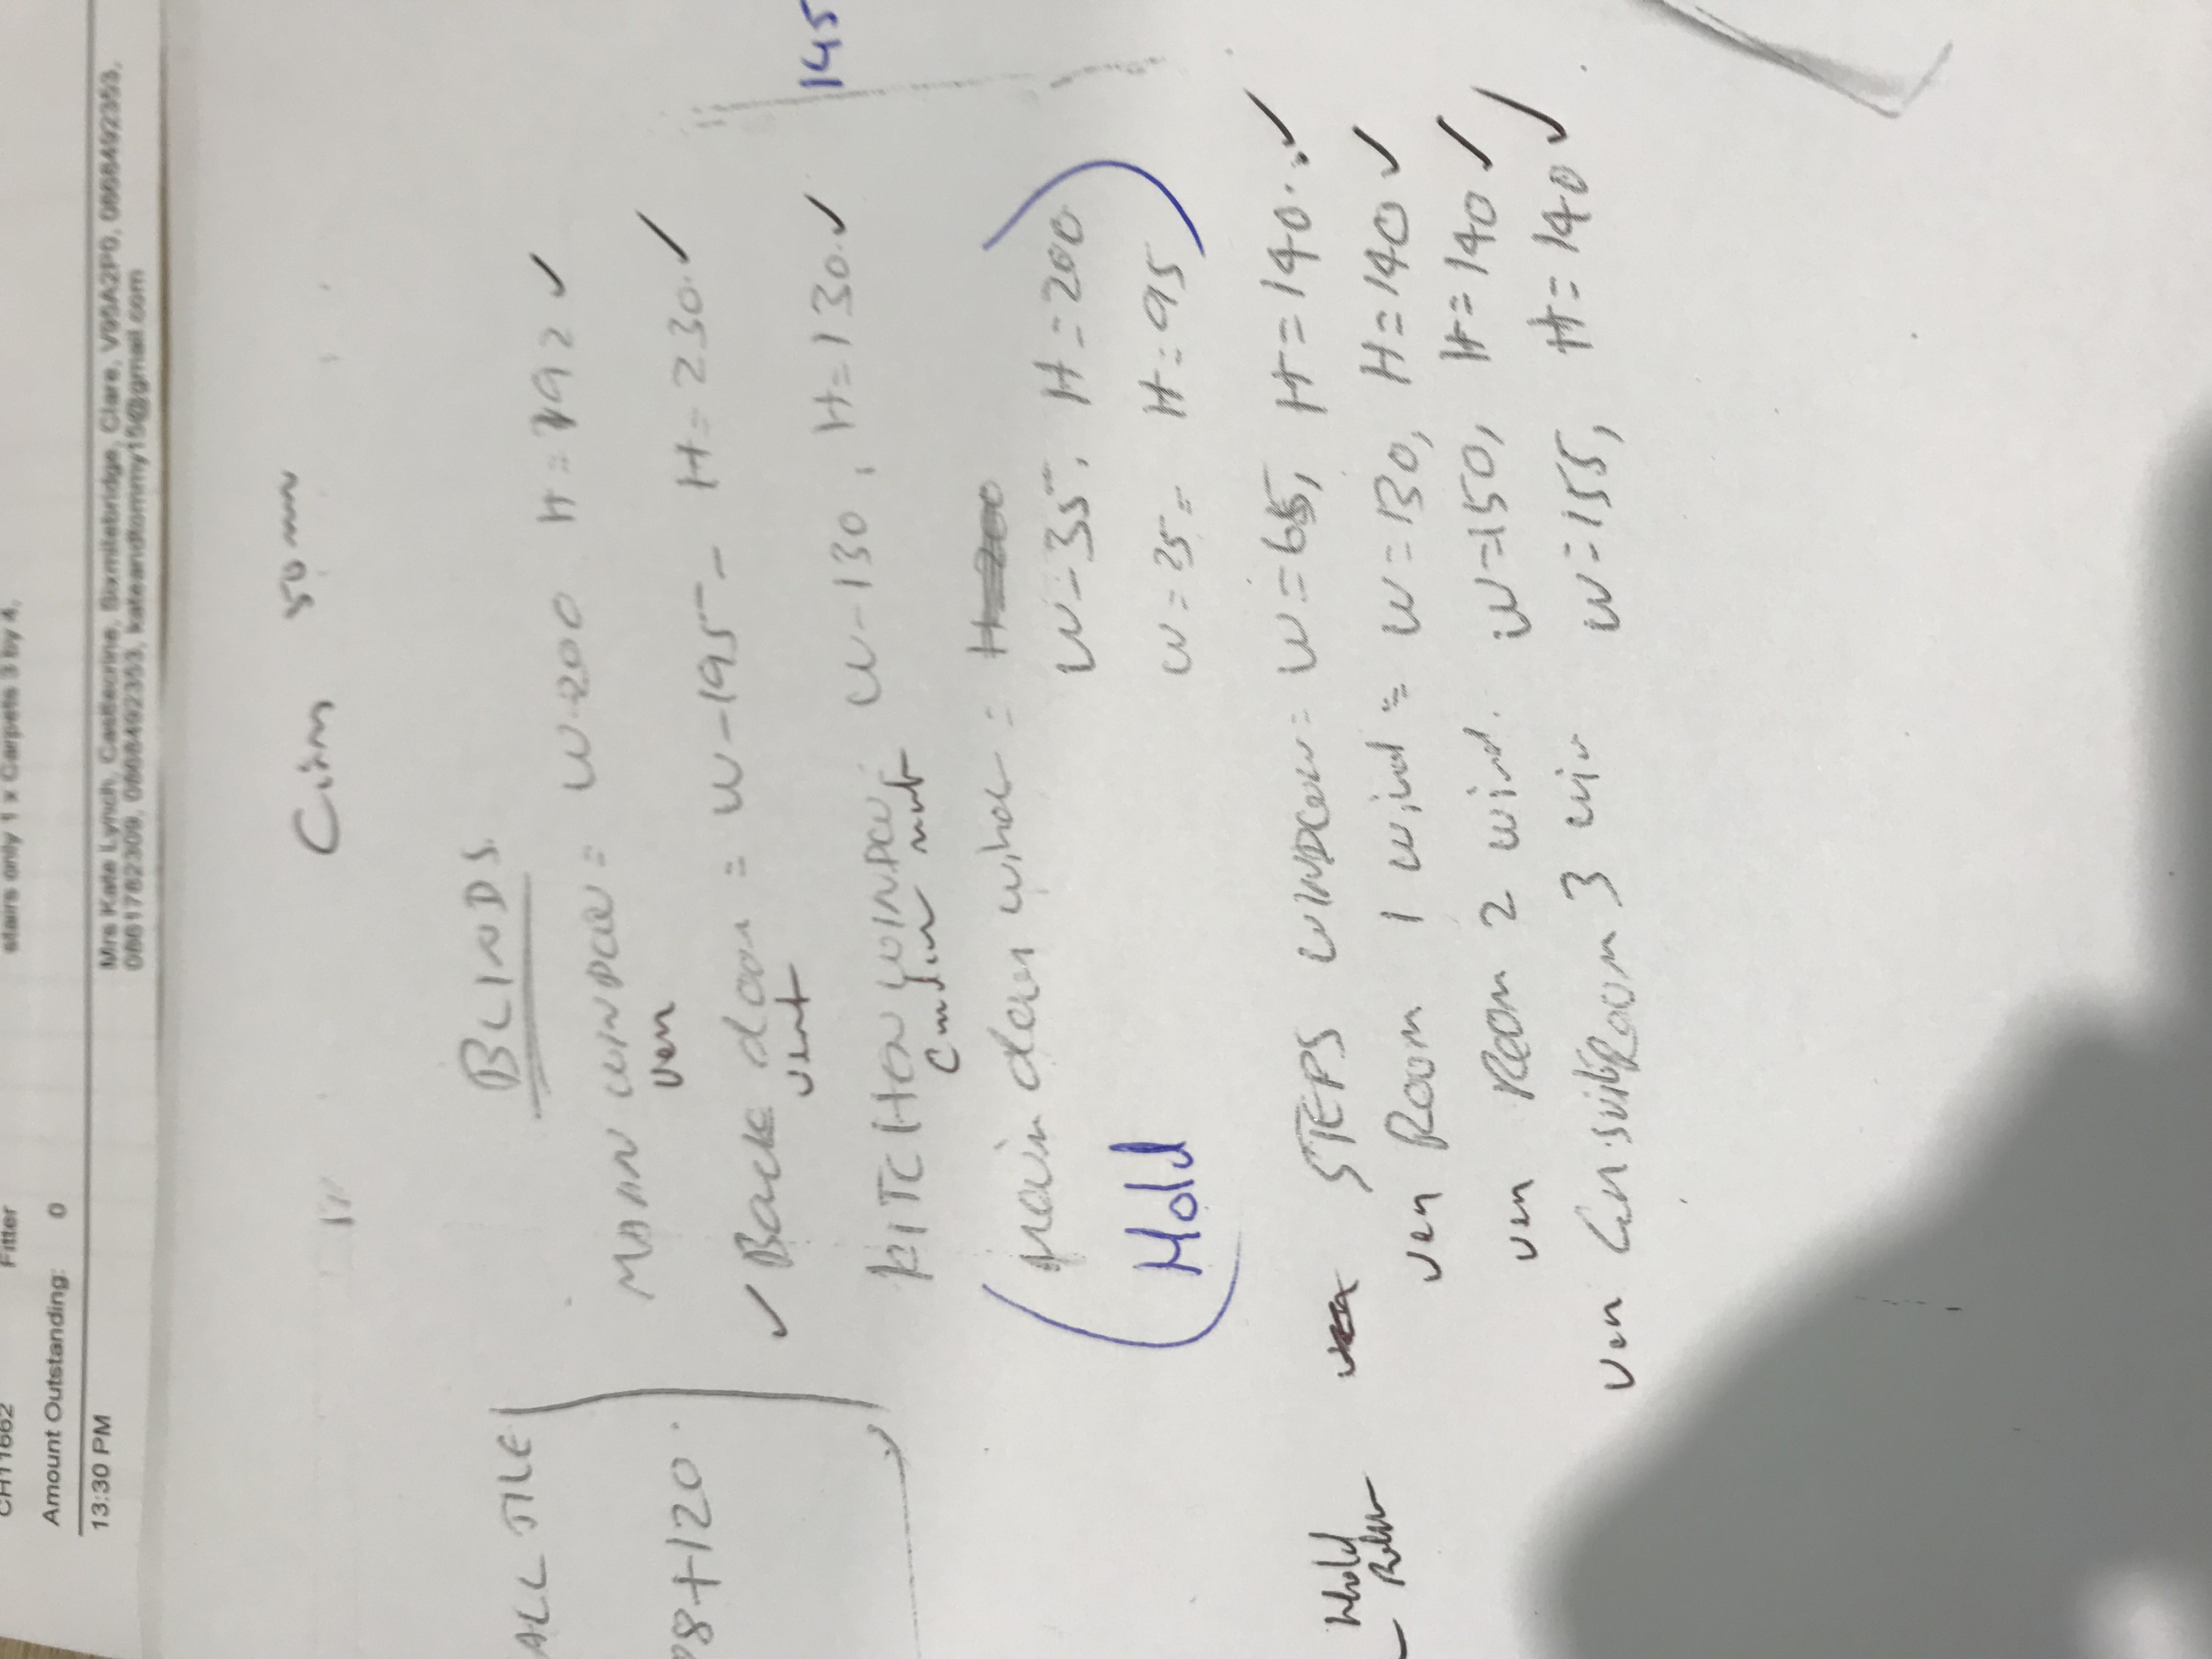 stairs only 1 x Carpets 3 by 4,
CH11662 Fitter
Amount Outstanding: 0
13:30 PM Mrs Kate Lynch, Castlecrine, Sixmilebridge, Clare, V95A2P0, 0868492353,
0861782309, 0868492353, kateandtommy15@gmail.com
50 mm
BLINDS.
ALL TILE
MAAN WINDOW = W-200 H=192 ✓
Ven
98+120.
✓ Back door = W-195- H=230. ✓
vent
145
KITCHEN WINDOW W-130, H=130. ✓
down
W-35, H=200
Hold
W=25= H=95
Hold STEPS WINDOW= W=65, H=140. ✓
ven Room 1 wind= W=130, H=140 ✓
ven Room 2 wind. W=150, H=140 ✓
ven Room 3 win W=155, H=140 ✓